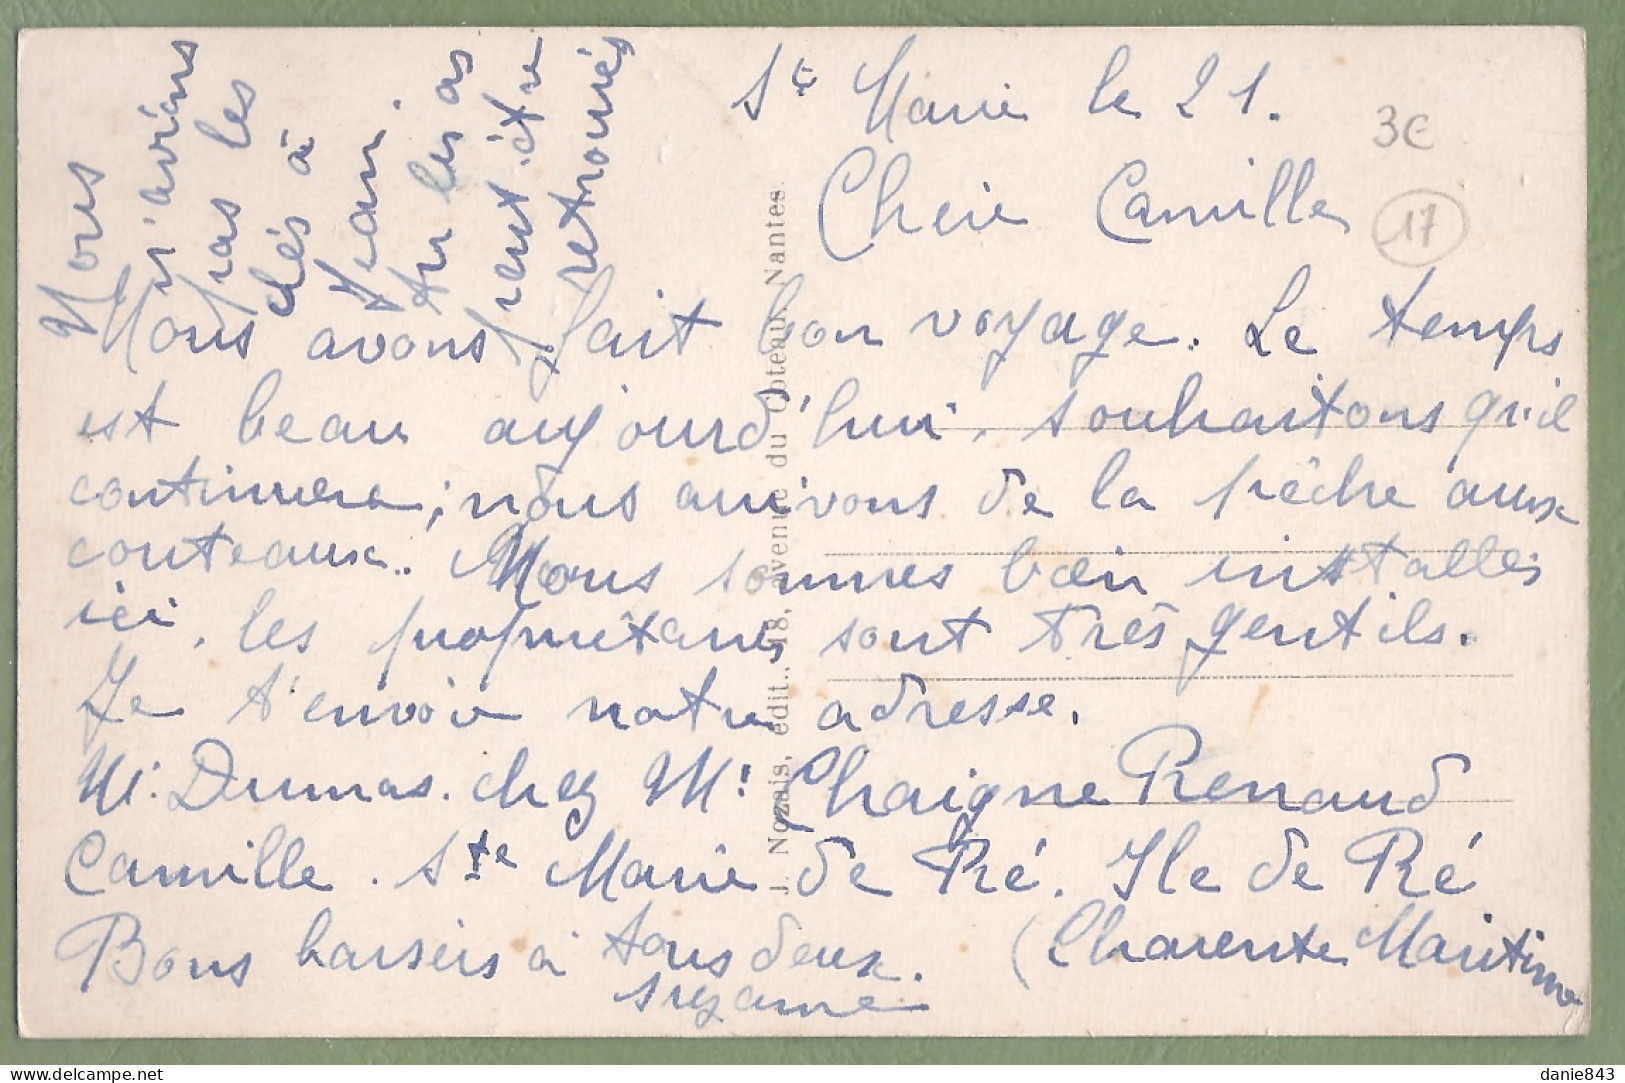 Ste Marie le 21.
Cherie Camille
Nous avons fait bon voyage. Le temps
est beau aujourd'hui, souhaitons qu'il
continuera ; nous arrivons de la pêche aux
couteaux. Nous sommes bien installés
ici, les propriétaires sont très gentils.
Je t'envoie notre adresse.
Mr. Dumas. chez Mr Chaigne Renaud
Camille. Ste Marie de Ré. Ile de Ré
(Charente Maritime
Bons baisers à tous deux.
Suzanne
Nous
n'avions
pas les
clés à
Jean.
tu les as
peut-être
retrouvés
J. Nozais, édit., 18, avenue du Coteau, Nantes.
3€
17
danie843